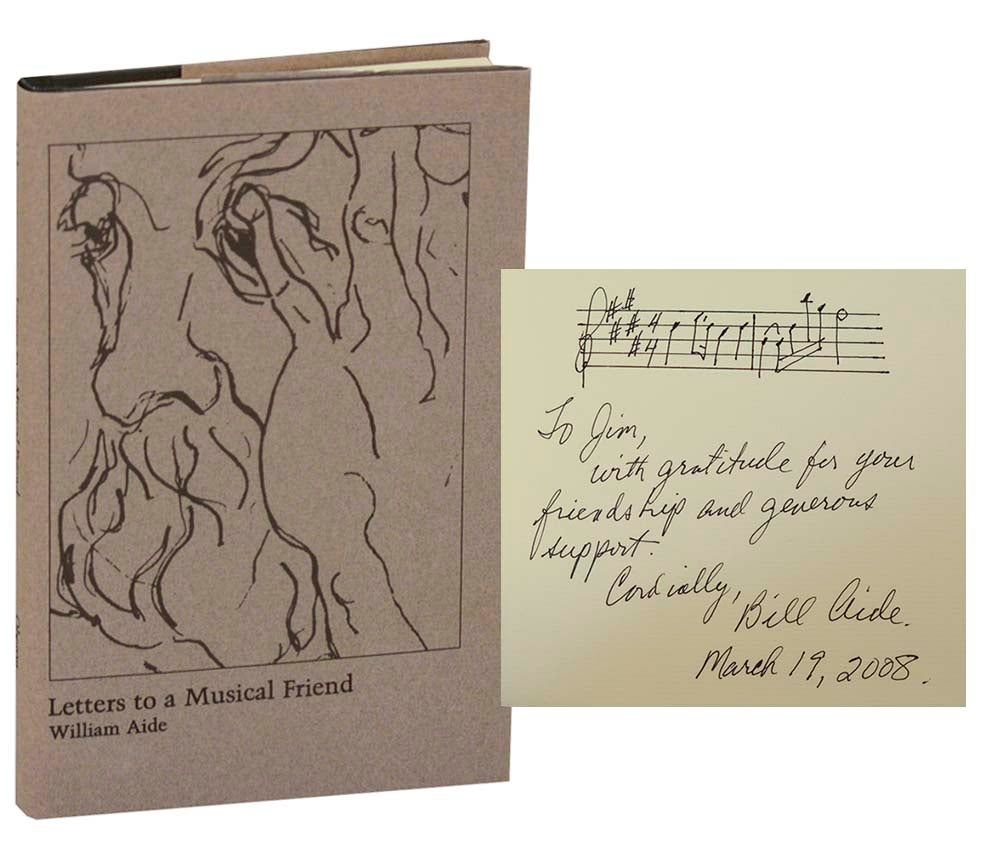 Letters to a Musical Friend
William Aide
4
4
To Jim,
with gratitude for your
friendship and generous
support.
Cordially,
Bill Aide.
March 19, 2008.